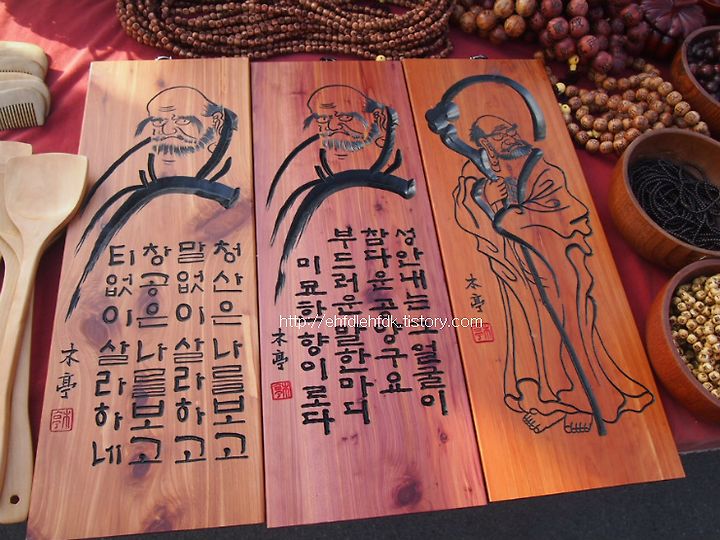 청산은 나를보고
말없이 살라하고
창공은 나를보고
티없이 살라하네
木亭
성안내는 얼굴이
참다운공양구요
부드러운말한마디
미묘한향이로다
木亭
木亭
http://ehfdlehfdk.tistory.com